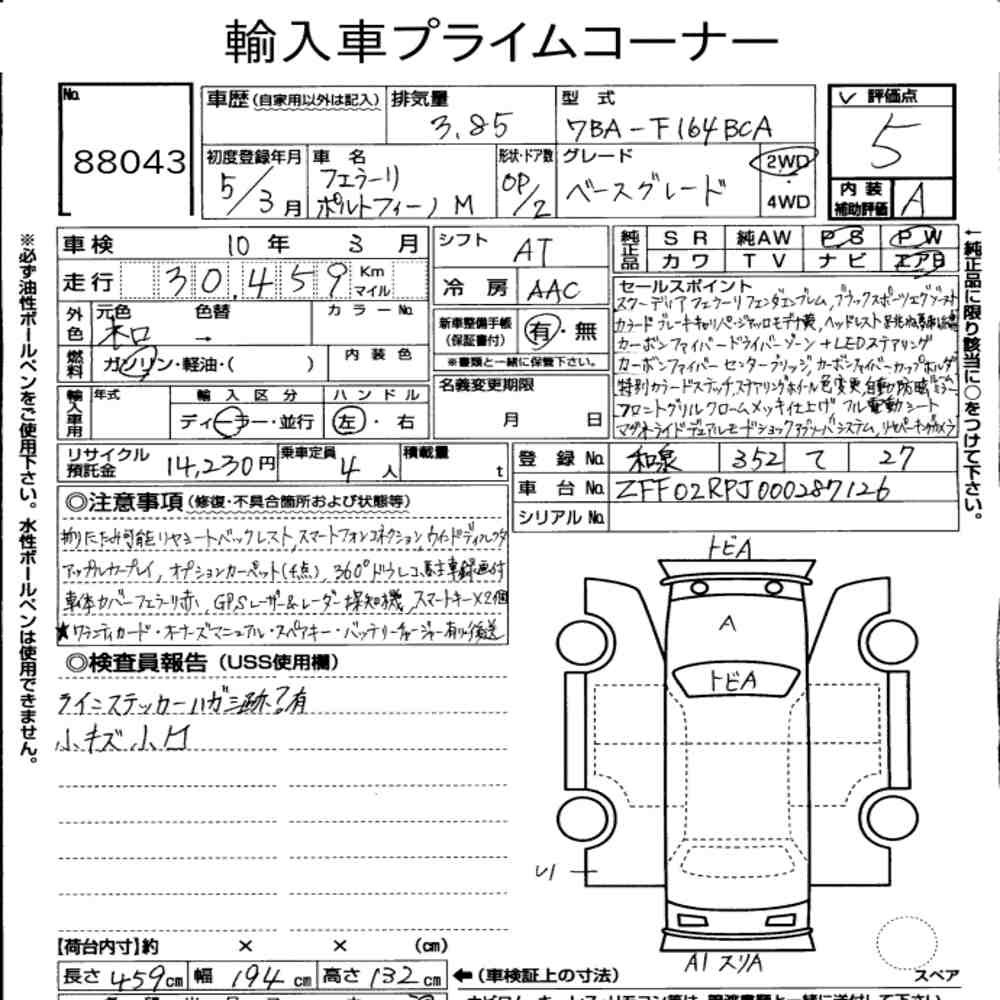 輸入車プライムコーナー
No.
88043
車歴(自家用以外は記入)
排気量
3.85
型 式
7BA-F164BCA
評価点
5
初度登録年月
5/3月
車 名
フェラーリ
ポルトフィーノ M
形状・ドア数
OP/2
グレード
ベースグレード
2WD
・
4WD
内 装
補助評価
A
車 検 10年 3月
走 行 30,459 Km マイル
シフト AT
冷 房 AAC
純正品 SR 純AW PS PW
カワ TV ナビ エアB
←純正品に限り該当に○をつけて下さい。
※必ず油性ボールペンをご使用下さい。水性ボールペンは使用できません。
外色 元色 色替 カラーNo.
燃料 ガソリン・軽油・( )
内 装 色
新車整備手帳
(保証書付)
有・無
※書類と一緒に保管下さい。
輸入車用 年式 輸 入 区 分 ハ ン ド ル
ディーラー・並行 左・右
名義変更期限
月 日
セールスポイント
スクーデリアフェラーリフェンダエンブレム,ブラックスポーツエグゾースト
カーボンファイバードライバーゾーン+LEDステアリング
カーボンファイバーセンターブリッジ,カーボンファイバーカップホルダ
フロントグリルクロームメッキ仕上げ フル電動シート
リサイクル
預託金
14,230円
乗車定員 4人
積載量 t
登 録 No. 和泉 352 て 27
車 台 No. ZFF02RPJ000287126
シリアル No.
◎注意事項(修復・不具合箇所および状態等)
折りたたみ可能リヤシートバックレスト,スマートフォンコネクション,ウインドディフレクタ
アップルカープレイ,オプションカーペット(4点),360°ドラレコ駐車録画付
車体カバーフェラーリ赤,GPSレーザー&レーダー探知機,スマートキー×2個
★ワランティカード・オーナーズマニュアル・スペアキー・バッテリーチャージャー有り後送
◎検査員報告(USS使用欄)
ラインステッカーハガシ跡?有
小キズ小凹
トビA
A
トビA
A1スリA
スペア
【荷台内寸】約 × × (cm)
長さ 459cm 幅 194cm 高さ 132cm
←(車検証上の寸法)